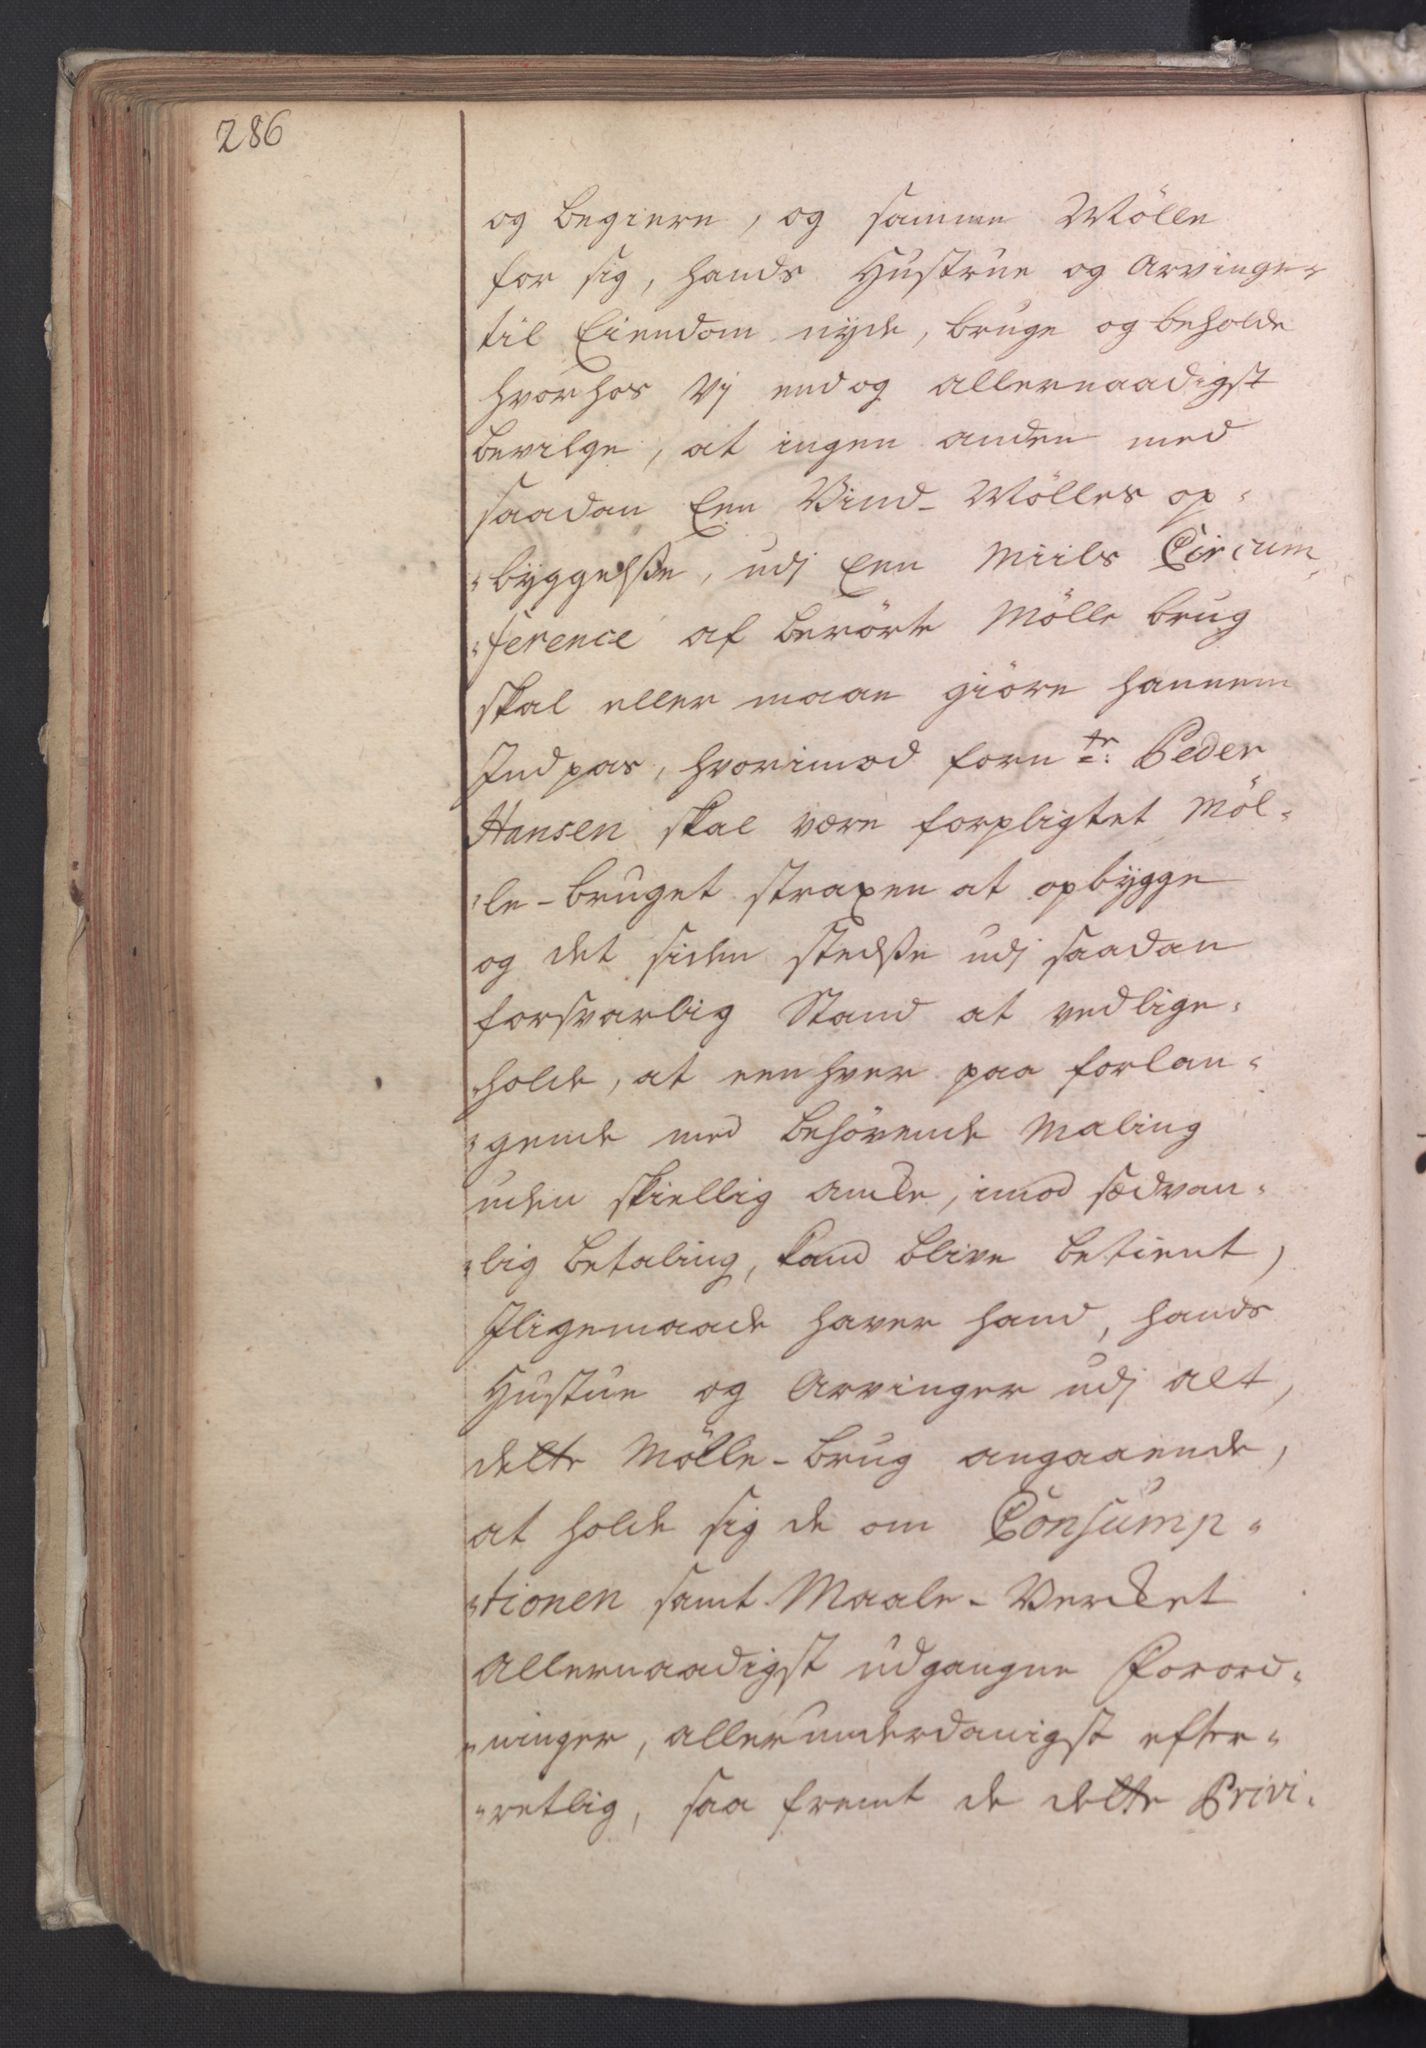 286
og begiere, og samme Mölle
for sig, hands Hustrue og Arvinger
til Eiendom nyde, bruge og beholde
hvorhos Vj endog allernaadigst
bevilge, at ingen anden med
saadan Een Vind-Mölles op-
byggelsse, udj Een Miils Circum-
ference af berörte Mölle brug
skal eller maae giöre hannem
Indpas, hvorimod forn.te: Peder
Hansen skal være forpligtet Möl-
le-bruget straxen at opbygge
og det siden stedsse udj saadan
forsvarlig Stand at vedlige-
holde, at eenhver paa forlan-
gende med behövende Maling
uden skiellig anke, imod sædvan-
lig betaling, kand blive betient,
Iligemaade haver hand, hands
Hustue og Arvinger udj alt,
dette Mölle-brug angaaende,
at holde sig de om Consump-
tionen samt Maale-Verket
Allernaadigst udgangne Forord-
ninger, allerunderdanigst efter-
retlig, saa fremt de dette Privi-